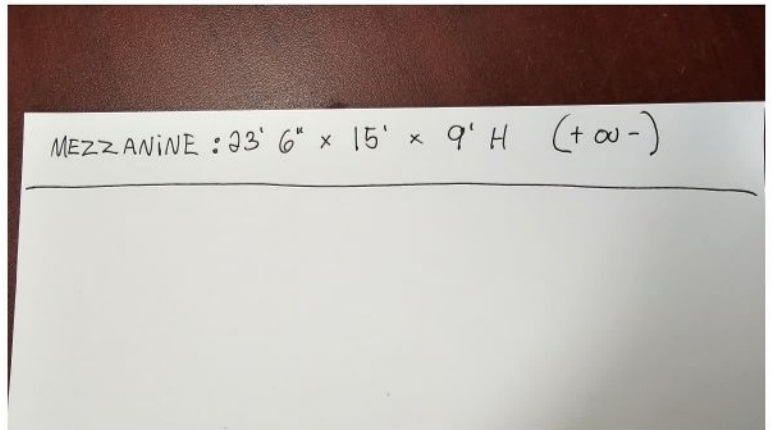 MEZZANINE : 23' 6" x 15' x 9' H (+ ou -)